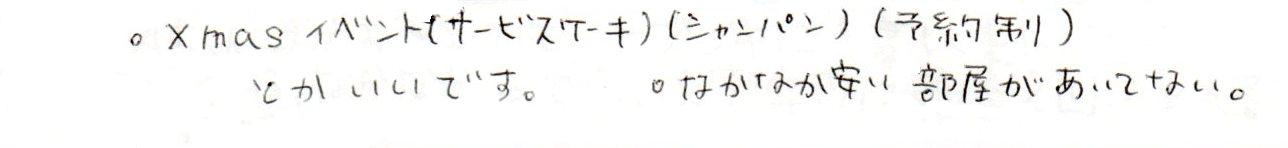 。Xmasイベント(サービスケーキ)(シャンパン)(予約制)
とかいいです。 。なかなか安い部屋があいてない。